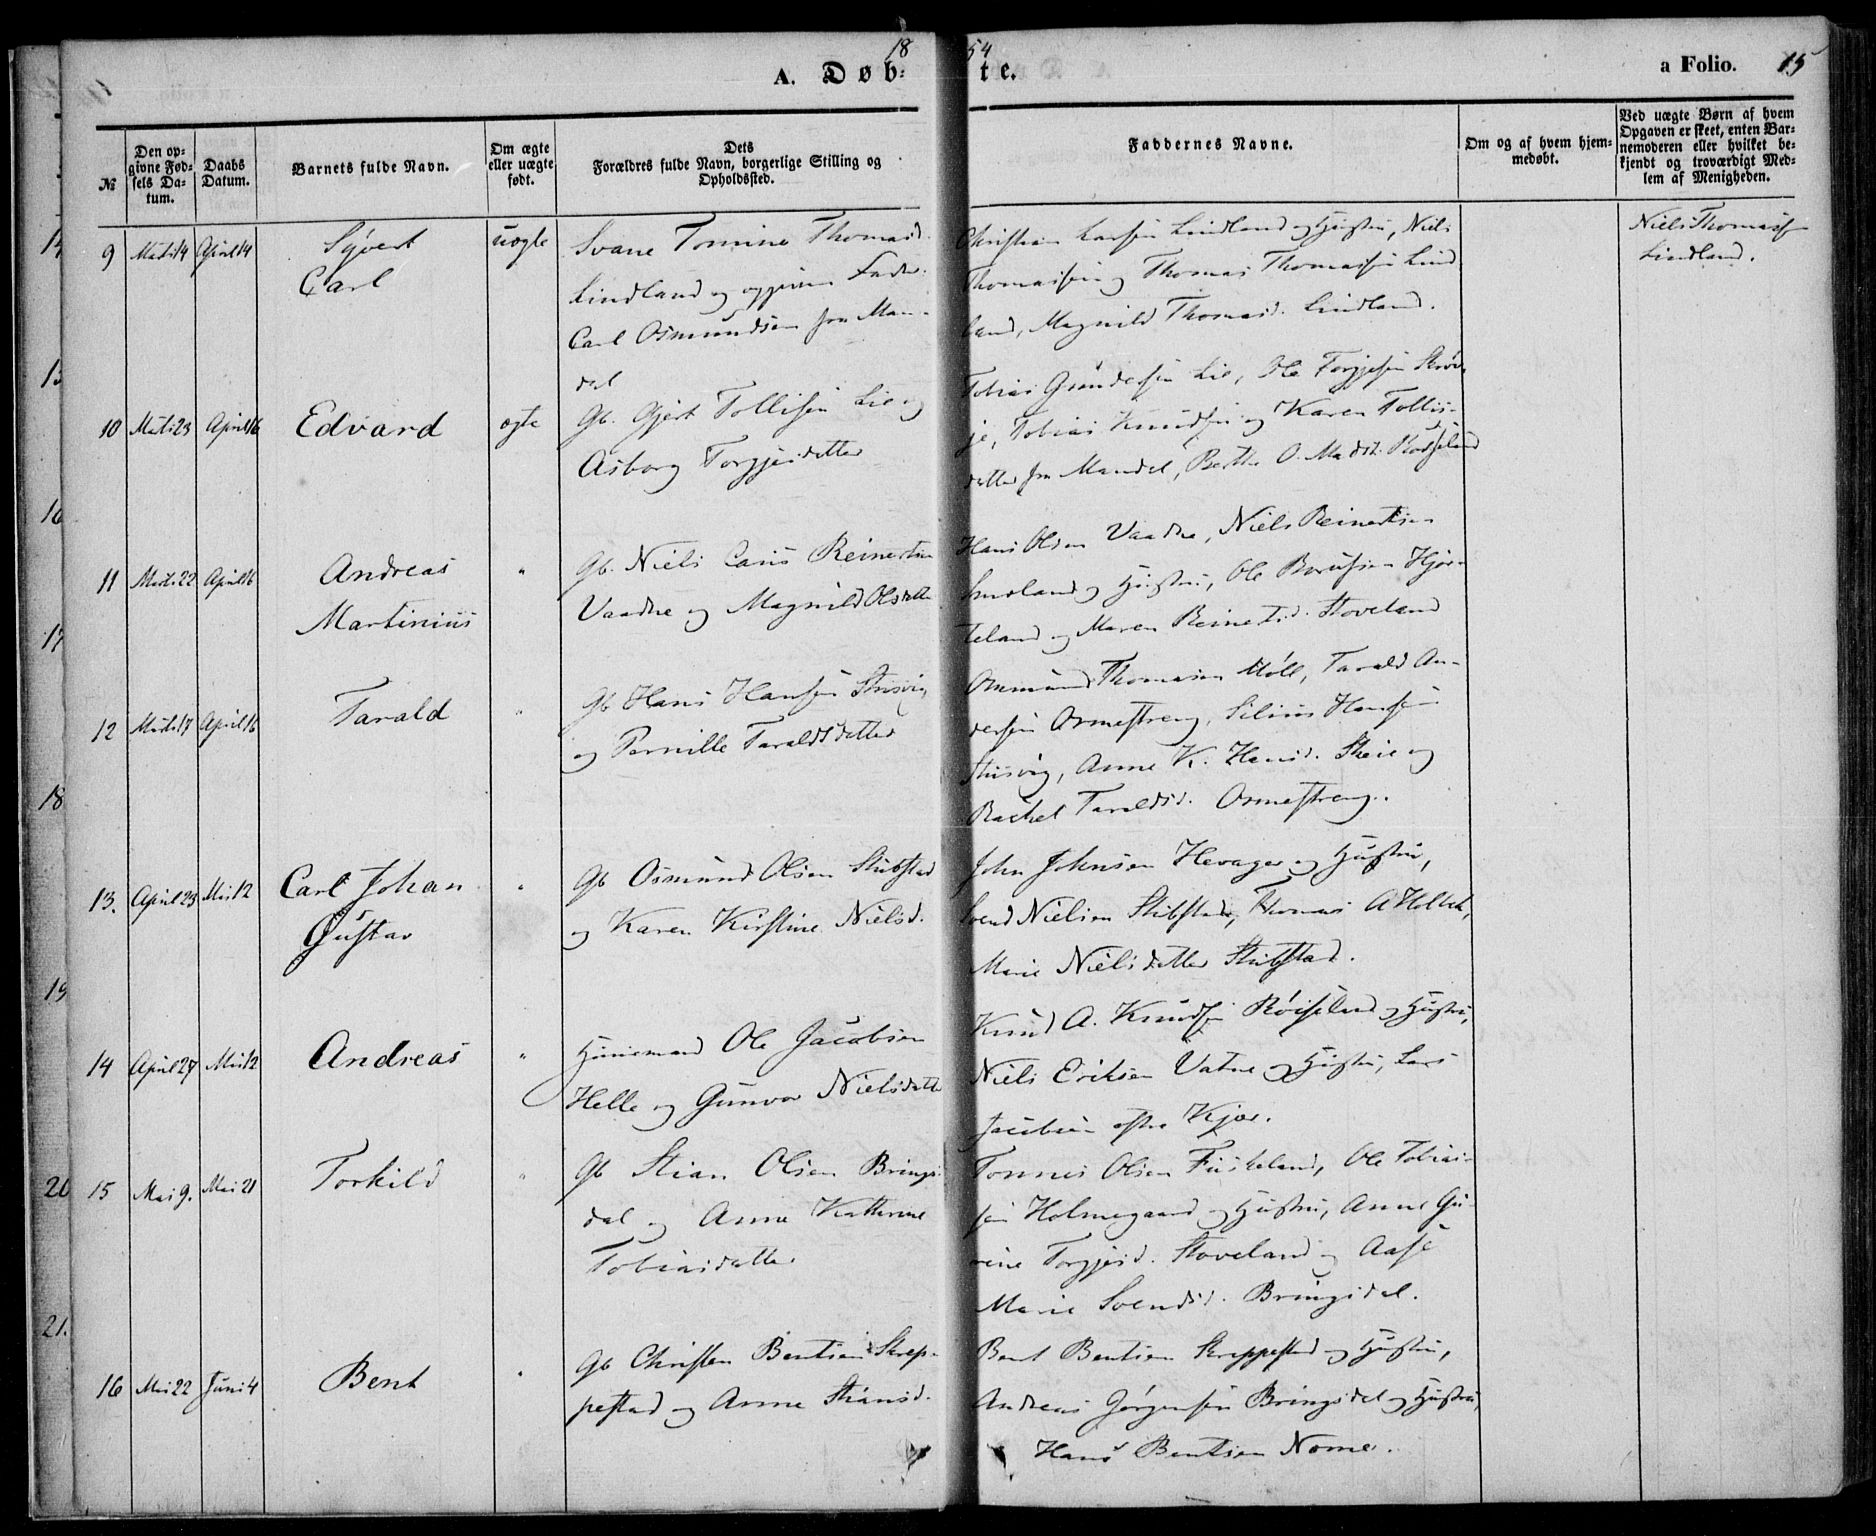 1854
A. Døbte.
a Folio. 15
№
Den opgivne Fødsels Datum.
Daabs Datum.
Barnets fulde Navn.
Om ægte eller uægte født.
Dets Forældres fulde Navn, borgerlige Stilling og Opholdssted.
Faddernes Navne.
Om og af hvem hjemmedøbt.
Ved uægte Børn af hvem Opgaven er skeet, enten Barnemoderen eller hvilket bekjendt og troværdigt Medlem af Menigheden.
9 Mats 14 April 14 Syvert Carl uægte
Svane Tomine Thomasd.
Lindland og opgiven Fader
Carl Osmundsen fra Man-
dal
Christian Larsen Lindland og Hustru, Niels
Thomassen og Thomas Thomassen Lind
land, Magnild Thomasd. Lindland.
Niels Thomass
Lindland.
10 Mats 23 April 16 Edvard ægte
Gb. Gjert Tollisen Lie og
Asborg Torgjesdatter
Tobias Gundersen Lie, Ole Torgjesen Skrøv-
je, Tobias Knudsen og Karen Tollis-
datter fra Mandal, Berthe O. Madsd.
11 Mats 22 April 16 Andreas Martinius "
Gb. Niels Reinertsen
Vaadne og Magnild Olsdatter
Hans Olsen Vaadne, Niels Reinertsen
og Hustru, Ole Hjor-
teland og Maren Reinertsd. Stoveland
12 Mats 17 April 16 Tarald "
Gb Hans Hansen Stusvig
og Pernille Taraldsdatter
Osmund Thomasen Møll, Tarald An-
dersen Ormestreng, Silius Hansen
Stusvig, Anne K. Hansd. Skeie og
Rachel Taraldsd. Ormestreng.
13. April 23 Mai 12 Carl Johan Gustav "
Gb Osmund Olsen Stubstad
og Karen Kirstine Nielsd.
John Johnsen Hevager og Hustru,
Svend Nielsen Stubstad, Thomas A Holte,
Marie Nielsdatter Stubstad.
14 April 27 Mai 12 Andreas "
Huusmand Ole Jacobsen
Helle og Gunvor Nielsdatter
Knud A. Knudsen Røiseland og Hustru,
Niels Eriksen Vatne og Hustru, Lars
Jacobsen østre Kjær.
15 Mai 9. Mai 21 Torkild "
Gb Stian Olsen Brings-
dal og Anne Katherine
Tobiasdatter
Tonnes Olsen Fuskeland, Ole Tobias-
sen Holmegaard og Hustru, Anne Gu-
rine Torgjesd. Stoveland og Aase
Marie Svendsd. Bringsdal.
16 Mai 22 Juni 4 Bent "
Gb Christen Bentsen Skrep-
pestad og Anne Stiansd.
Bent Bentsen Skreppestad og Hustru,
Andreas Jørgensen Bringsdal og Hustru,
Hans Bentsen Nome.
14
15
16
17
18
19
20
21.